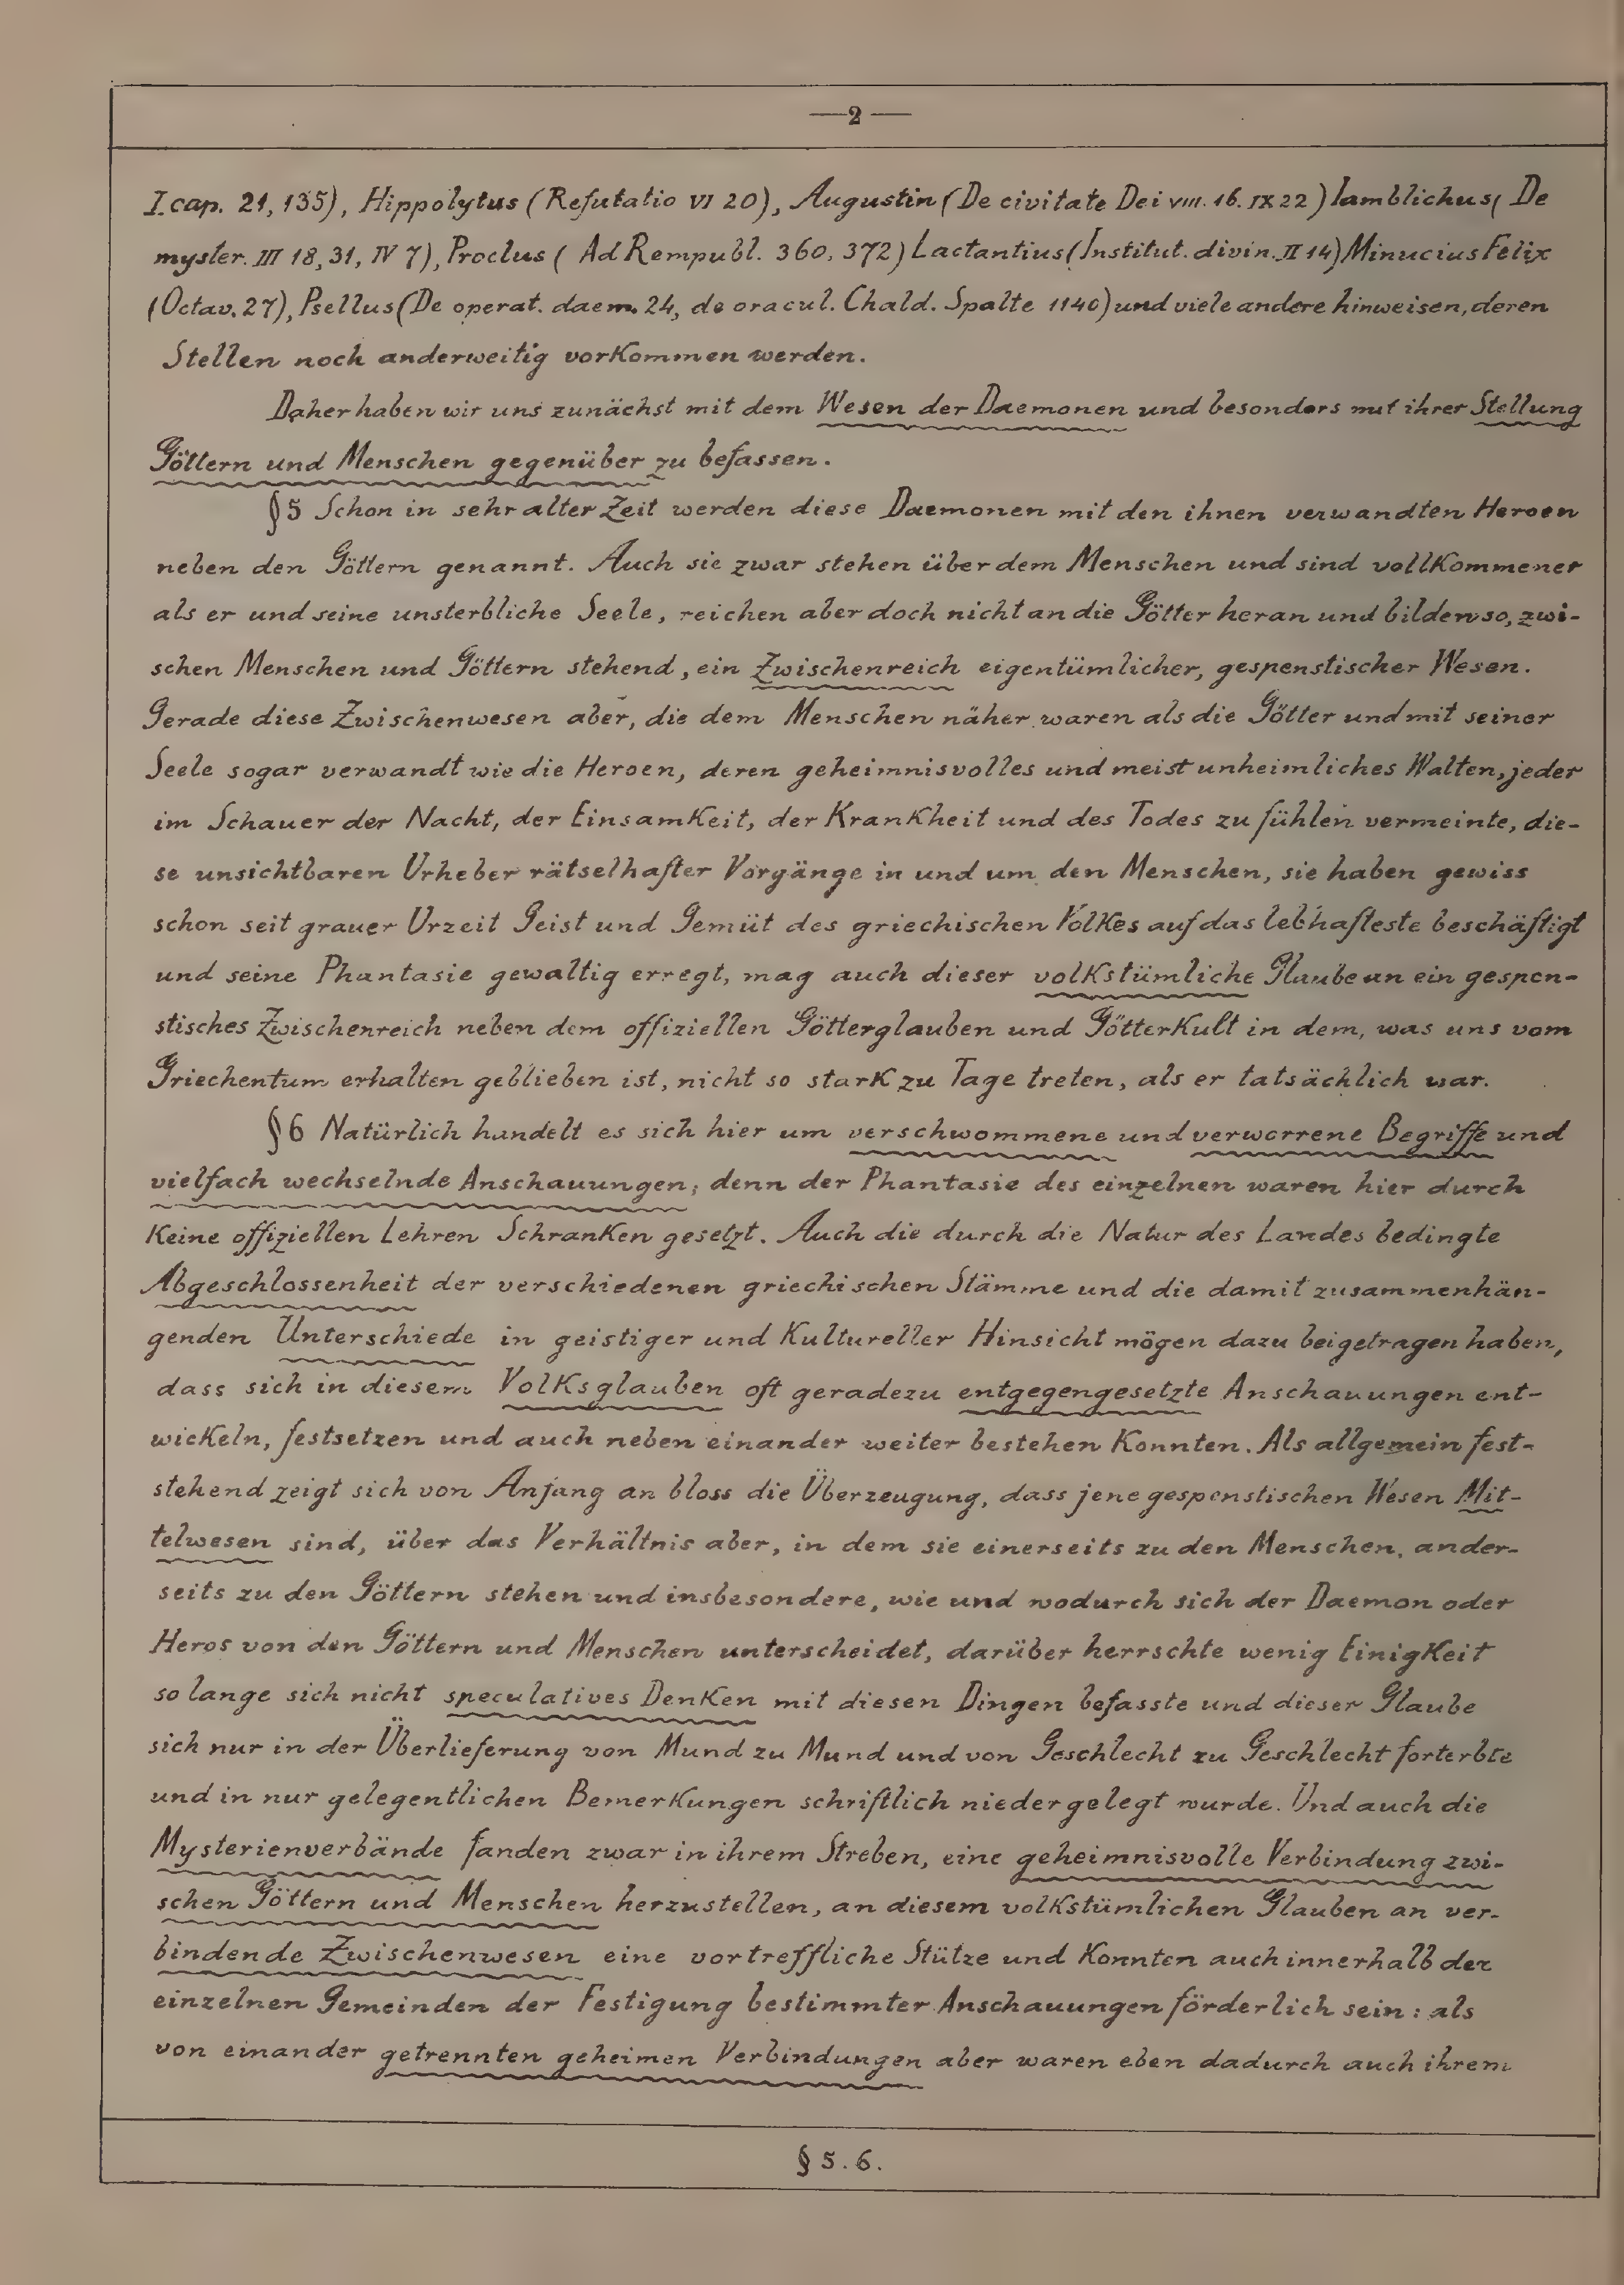 —2—
I. cap. 21, 135), Hippolytus (Refutatio VI 20), Augustin (De civitate Dei VIII. 16. IX 22) Iamblichus (De
myster. III 18, 31, IV 7), Proclus (Ad Rempubl. 360, 372) Lactantius (Institut. divin. II 14) Minucius Felix
(Octav. 27), Psellus (De operat. daem. 24, de oracul. Chald. Spalte 1140) und viele andere hinweisen, deren
Stellen noch anderweitig vorkommen werden.
Daher haben wir uns zunächst mit dem Wesen der Daemonen und besonders mit ihrer Stellung
Göttern und Menschen gegenüber zu befassen.
§5 Schon in sehr alter Zeit werden diese Daemonen mit den ihnen verwandten Heroen
neben den Göttern genannt. Auch sie zwar stehen über dem Menschen und sind vollkommener
als er und seine unsterbliche Seele, reichen aber doch nicht an die Götter heran und bilden so, zwi-
schen Menschen und Göttern stehend, ein Zwischenreich eigentümlicher, gespenstischer Wesen.
Gerade diese Zwischenwesen aber, die dem Menschen näher waren als die Götter und mit seiner
Seele sogar verwandt wie die Heroen, deren geheimnisvolles und meist unheimliches Walten, jeder
im Schauer der Nacht, der Einsamkeit, der Krankheit und des Todes zu fühlen vermeinte, die-
se unsichtbaren Urheber rätselhafter Vorgänge in und um den Menschen, sie haben gewiss
schon seit grauer Urzeit Geist und Gemüt des griechischen Volkes auf das lebhafteste beschäftigt
und seine Phantasie gewaltig erregt, mag auch dieser volkstümliche Glaube an ein gespen-
stisches Zwischenreich neben dem offiziellen Götterglauben und Götterkult in dem, was uns vom
Griechentum erhalten geblieben ist, nicht so stark zu Tage treten, als er tatsächlich war.
§6 Natürlich handelt es sich hier um verschwommene und verworrene Begriffe und
vielfach wechselnde Anschauungen; denn der Phantasie des einzelnen waren hier durch
keine offiziellen Lehren Schranken gesetzt. Auch die durch die Natur des Landes bedingte
Abgeschlossenheit der verschiedenen griechischen Stämme und die damit zusammenhän-
genden Unterschiede in geistiger und kultureller Hinsicht mögen dazu beigetragen haben,
dass sich in diesem Volksglauben oft geradezu entgegengesetzte Anschauungen ent-
wickeln, festsetzen und auch neben einander weiter bestehen konnten. Als allgemein fest-
stehend zeigt sich von Anfang an bloss die Überzeugung, dass jene gespenstischen Wesen Mit-
telwesen sind, über das Verhältnis aber, in dem sie einerseits zu den Menschen, ander-
seits zu den Göttern stehen und insbesondere, wie und wodurch sich der Daemon oder
Heros von den Göttern und Menschen unterscheidet, darüber herrschte wenig Einigkeit
so lange sich nicht speculatives Denken mit diesen Dingen befasste und dieser Glaube
sich nur in der Überlieferung von Mund zu Mund und von Geschlecht zu Geschlecht forterbte
und in nur gelegentlichen Bemerkungen schriftlich niedergelegt wurde. Und auch die
Mysterienverbände fanden zwar in ihrem Streben, eine geheimnisvolle Verbindung zwi-
schen Göttern und Menschen herzustellen, an diesem volkstümlichen Glauben an ver-
bindende Zwischenwesen eine vortreffliche Stütze und konnten auch innerhalb der
einzelnen Gemeinden der Festigung bestimmter Anschauungen förderlich sein: als
von einander getrennten geheimen Verbindungen aber waren eben dadurch auch ihrem
§ 5. 6.